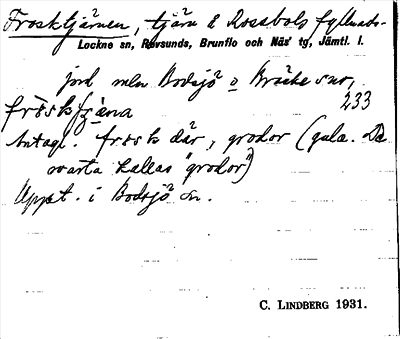 Frosktjärnen, tjärn å Rossbols fyllnads-
Lockne sn, Revsunds, Brunflo och Näs' tg, Jämtl. l.
jord mln Bodsjö o Bräcke snr,
233
fröskʃǣna
Antagl. frosk där, grodor (gula. De
svarta kallas "grodor")
Uppt. i Bodsjö sn.
C. LINDBERG 1931.